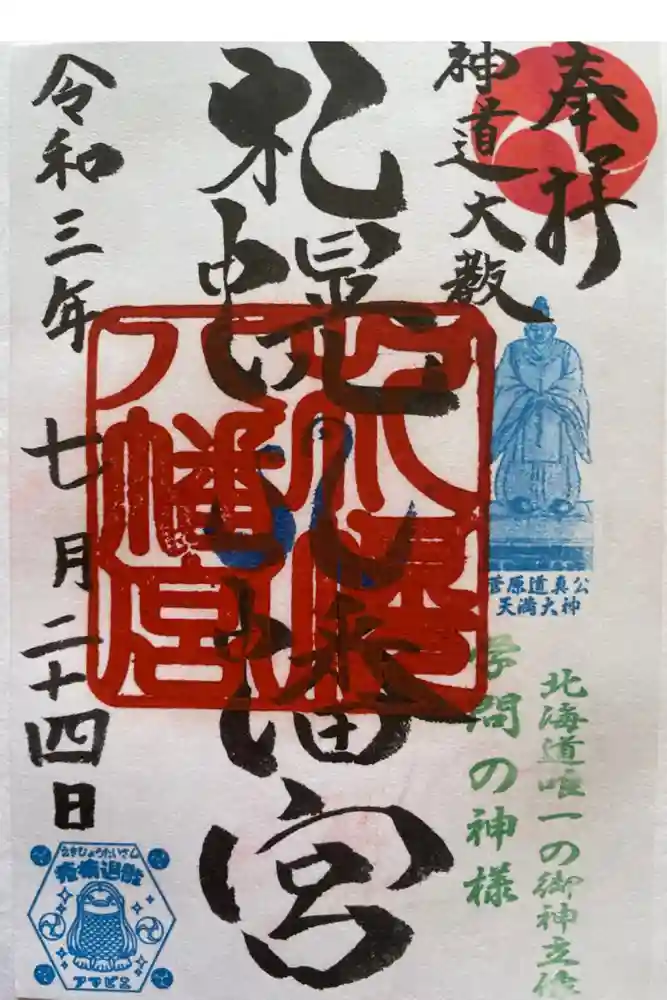 奉拝
神道大教
菅原道真公
天満大神
北海道唯一の御神立像
学問の神様
札幌八幡宮
札幌
八幡宮
令和三年
七月二十四日
えきびょうたいさん
疫病退散
アマビエ